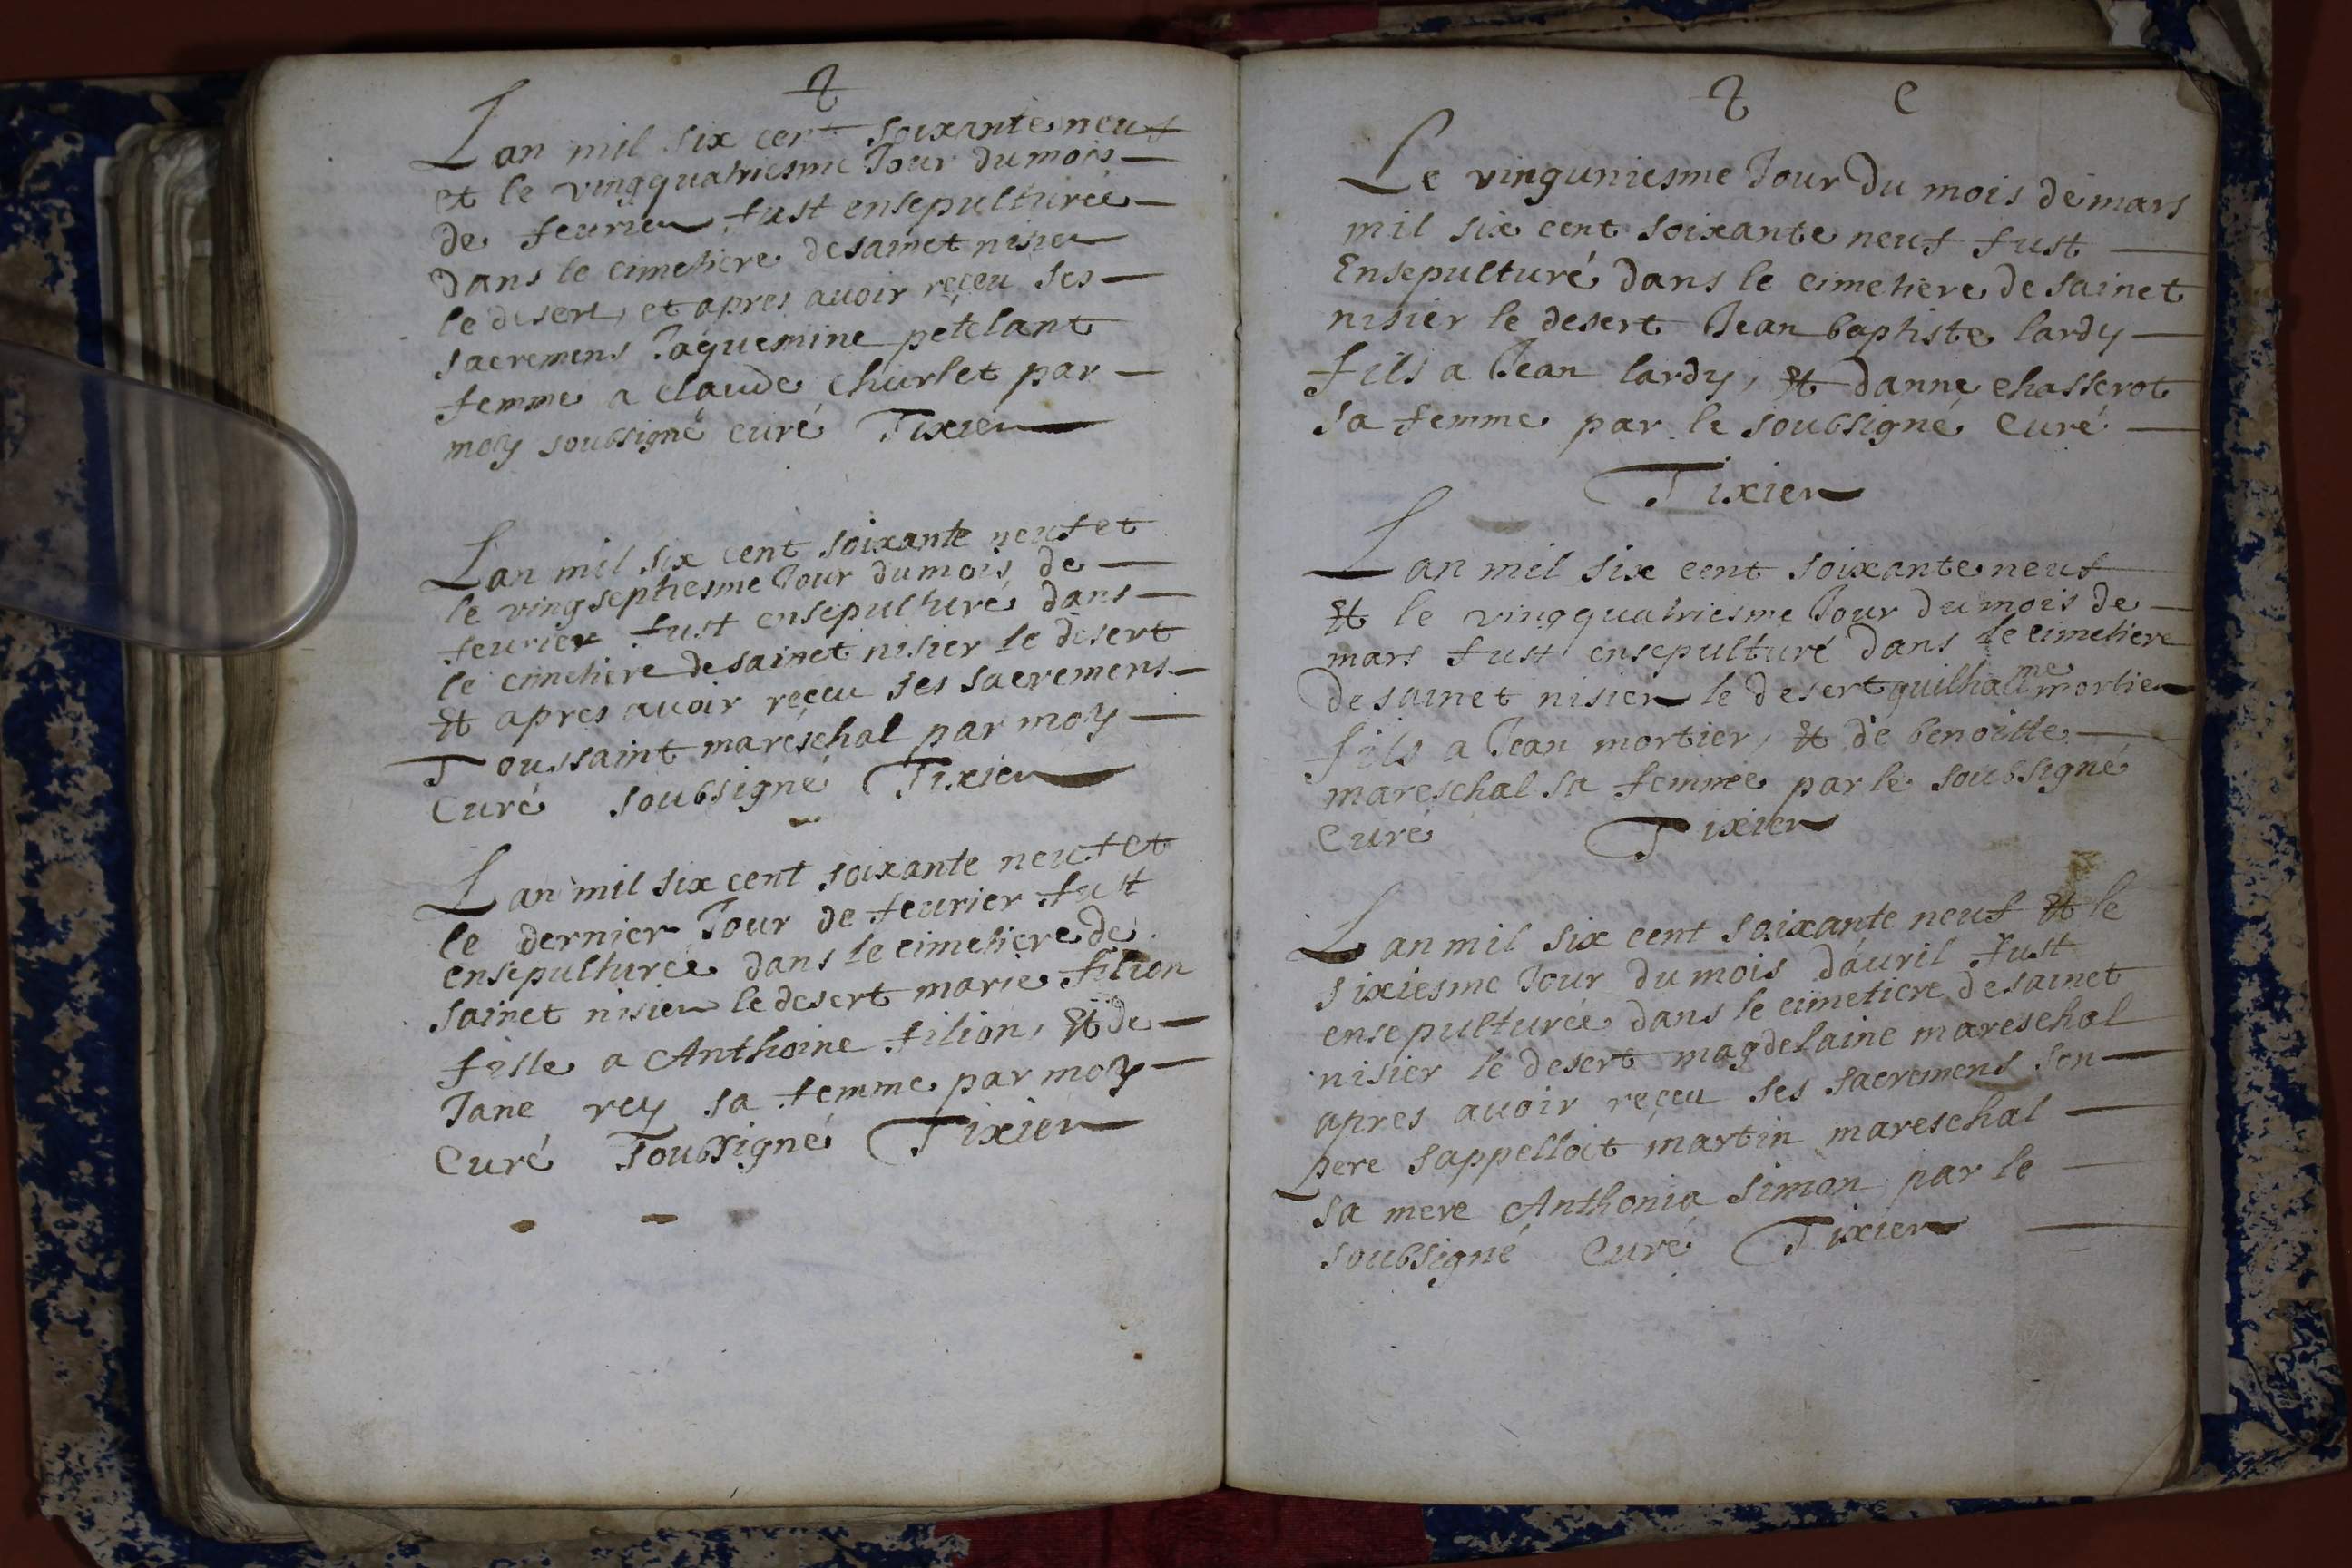 Lan mil six cent soixante neuf
et le vingquatriesme Jour du mois
de feurier fust ensepulturée
dans le cimetiere de sainct nisier
le desert, et apres auoir reçeu ses
sacremens Jaquemine petelant
femme a Claude Churlet par
moy soubsigné curé Tixier
Lan mil six cent soixante neuf et
le vingseptiesme Jour du mois de
feurier fust ensepulturé dans
le cimetiere de sainct nisier le desert
Et apres auoir reçeu ses sacremens
Toussaint mareschal par moy
Curé soubsigné Tixier
Lan mil six cent soixante neuf et
le dernier Jour de feurier fust
ensepulturée dans le cimetiere de
sainct nisier le desert marie filion
fille a Anthoine filion, Et de
Jane rey sa femme par moy
Curé soubsigné Tixier
Le vinguniesme Jour Du mois de mars
mil six cent soixante neuf fust
Ensepulturé dans le cimetiere de sainct
nisier le desert Jean baptiste lardy
fils a Jean lardy, Et danne chasserot
sa femme par le soubsigné Curé
Tixier
Lan mil six cent soixante neuf
Et le vingquatriesme Jour du mois de
mars fust ensepulturé dans le cimetiere
de sainct nisier le desert guilhaume mortier
fils a Jean mortier, Et de benoitte
mareschal sa femme par le soubsigné
Curé Tixier
Lan mil six cent soixante neuf Et le
sixiesme Jour du mois dauril fust
ensepulturée dans le cimetiere de sainct
nisier le desert magdelaine mareschal
apres auoir reçeu ses sacremens son
pere sappelloit martin mareschal
sa mere Anthonia simon par le
soubsigné Curé Tixier